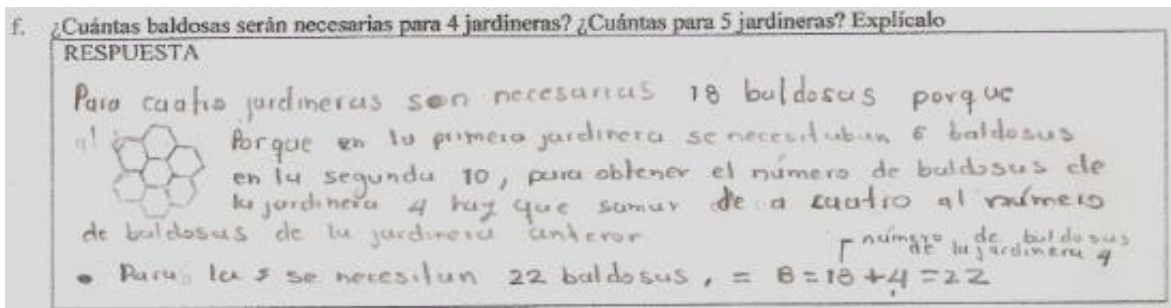 f. ¿Cuántas baldosas serán necesarias para 4 jardineras? ¿Cuántas para 5 jardineras? Explícalo
RESPUESTA
Para cuatro jardineras son necesarias 18 baldosas porque
al
Porque en la primera jardinera se necesitaban 6 baldosas
en la segunda 10, para obtener el número de baldosas de
la jardinera 4 hay que sumar de a cuatro al número
de baldosas de la jardinera anteror
número de baldosas
de la jardinera 4
• Para la 5 se necesitan 22 baldosas, = 8 = 18 + 4 = 22